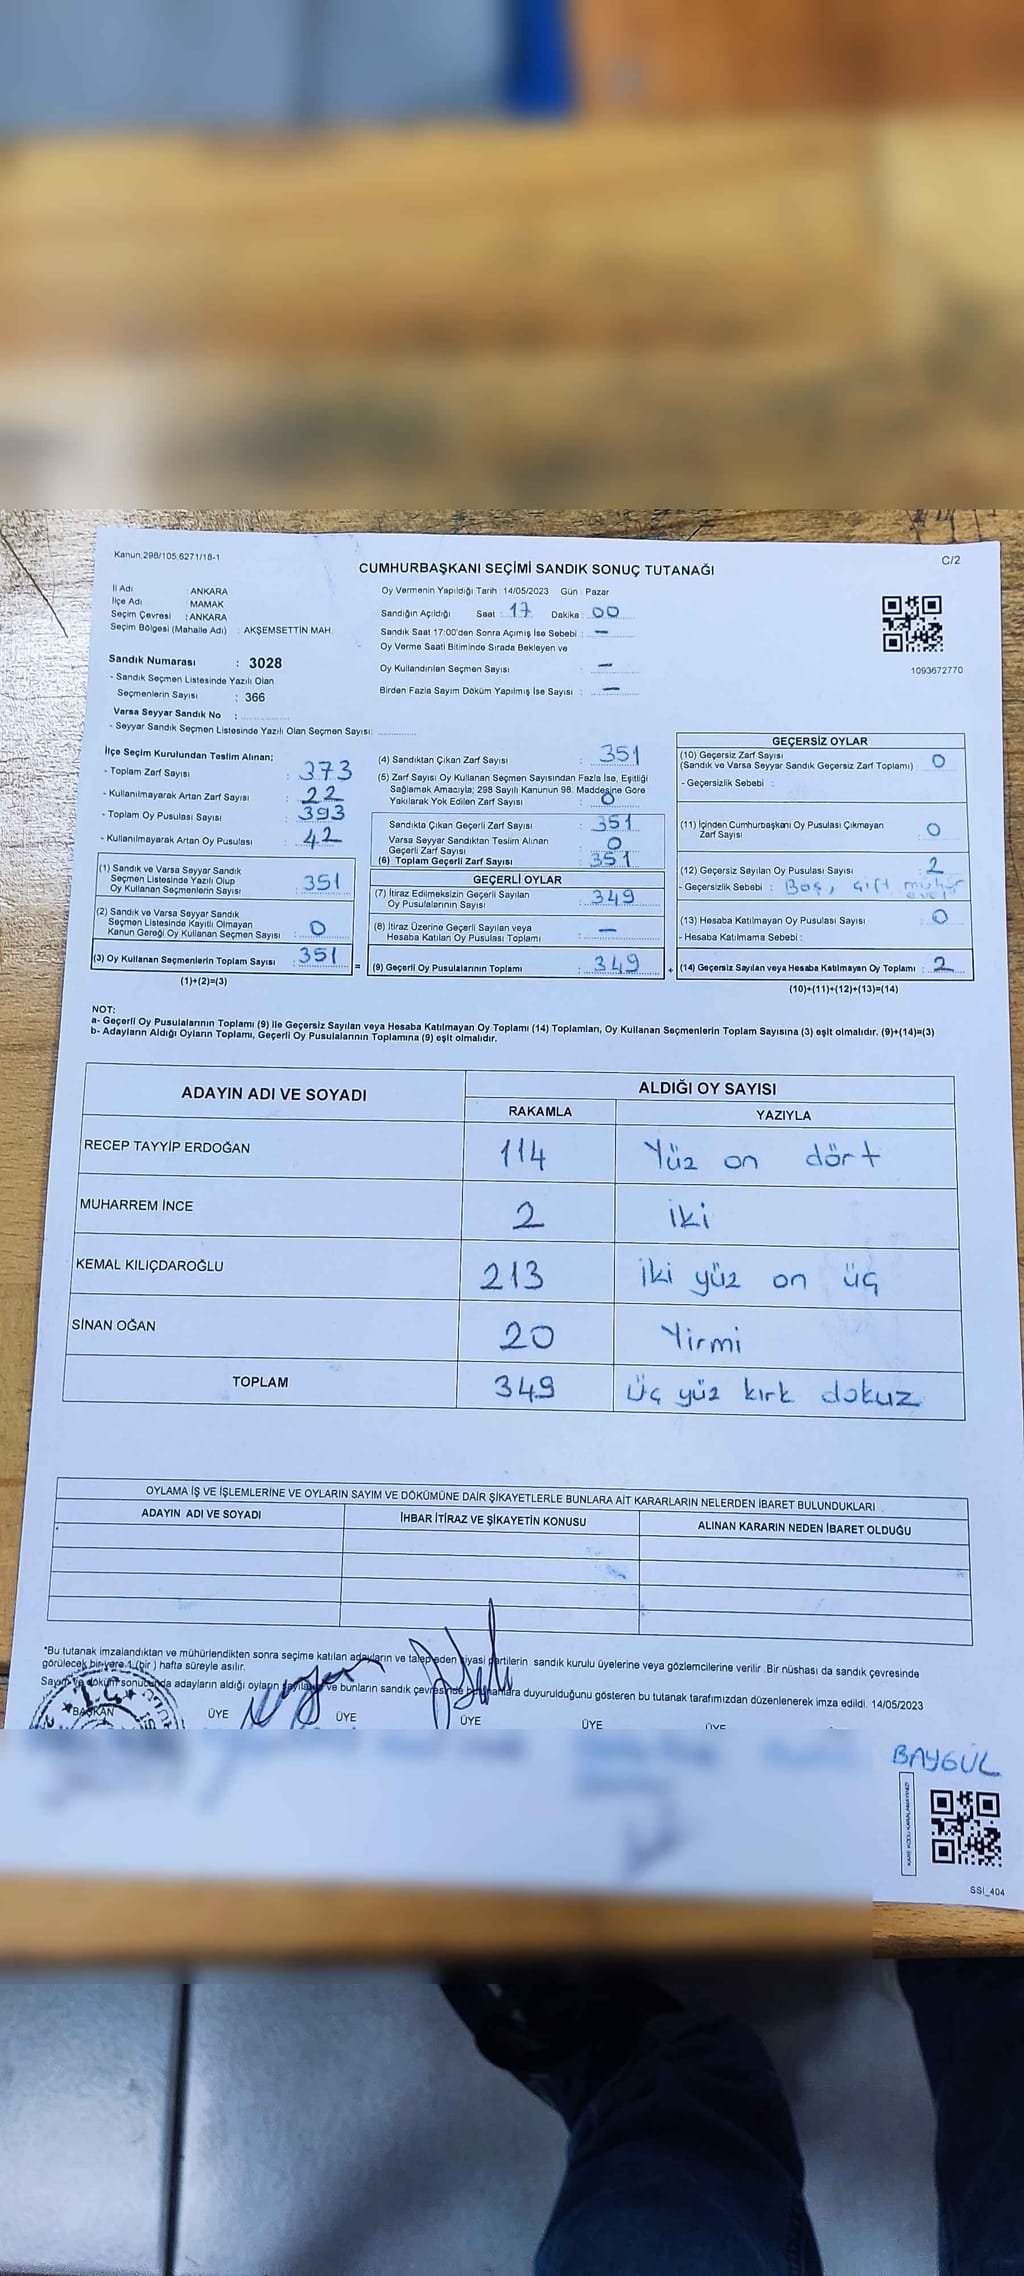 Kanun;298/105,6271/18-1
C/2
CUMHURBAŞKANI SEÇİMİ SANDIK SONUÇ TUTANAĞI
İl Adı : ANKARA
İlçe Adı : MAMAK
Seçim Çevresi : ANKARA
Seçim Bölgesi (Mahalle Adı) : AKŞEMSETTİN MAH.
Oy Vermenin Yapıldığı Tarih : 14/05/2023 Gün : Pazar
Sandığın Açıldığı Saat : 17 Dakika : 00
Sandık Saat 17:00'den Sonra Açımış İse Sebebi : —
Oy Verme Saati Bitiminde Sırada Bekleyen ve
Oy Kullandırılan Seçmen Sayısı : —
Birden Fazla Sayım Döküm Yapılmış İse Sayısı : —
1093672770
Sandık Numarası : 3028
- Sandık Seçmen Listesinde Yazılı Olan
Seçmenlerin Sayısı : 366
Varsa Seyyar Sandık No :
- Seyyar Sandık Seçmen Listesinde Yazılı Olan Seçmen Sayısı:
İlçe Seçim Kurulundan Teslim Alınan;
- Toplam Zarf Sayısı : 373
- Kullanılmayarak Artan Zarf Sayısı : 22
- Toplam Oy Pusulası Sayısı : 393
- Kullanılmayarak Artan Oy Pusulası : 42
(1) Sandık ve Varsa Seyyar Sandık
Seçmen Listesinde Yazılı Olup
Oy Kullanan Seçmenlerin Sayısı : 351
(2) Sandık ve Varsa Seyyar Sandık
Seçmen Listesinde Kayıtlı Olmayan
Kanun Gereği Oy Kullanan Seçmen Sayısı : 0
(3) Oy Kullanan Seçmenlerin Toplam Sayısı : 351
(1)+(2)=(3)
(4) Sandıktan Çıkan Zarf Sayısı : 351
(5) Zarf Sayısı Oy Kullanan Seçmen Sayısından Fazla İse, Eşitliği
Sağlamak Amacıyla; 298 Sayılı Kanunun 98. Maddesine Göre
Yakılarak Yok Edilen Zarf Sayısı : 0
Sandıkta Çıkan Geçerli Zarf Sayısı : 351
Varsa Seyyar Sandıktan Teslim Alınan
Geçerli Zarf Sayısı : 0
(6) Toplam Geçerli Zarf Sayısı : 351
GEÇERLİ OYLAR
(7) İtiraz Edilmeksizin Geçerli Sayılan
Oy Pusulalarının Sayısı : 349
(8) İtiraz Üzerine Geçerli Sayılan veya
Hesaba Katılan Oy Pusulası Toplamı : —
= (9) Geçerli Oy Pusulalarının Toplamı : 349
GEÇERSİZ OYLAR
(10) Geçersiz Zarf Sayısı
(Sandık ve Varsa Seyyar Sandık Geçersiz Zarf Toplamı) : 0
- Geçersizlik Sebebi :
(11) İçinden Cumhurbaşkanı Oy Pusulası Çıkmayan
Zarf Sayısı : 0
(12) Geçersiz Sayılan Oy Pusulası Sayısı : 2
- Geçersizlik Sebebi : Boş, çift mühür
(13) Hesaba Katılmayan Oy Pusulası Sayısı : 0
- Hesaba Katılmama Sebebi :
+ (14) Geçersiz Sayılan veya Hesaba Katılmayan Oy Toplamı : 2
(10)+(11)+(12)+(13)=(14)
NOT:
a- Geçerli Oy Pusulalarının Toplamı (9) ile Geçersiz Sayılan veya Hesaba Katılmayan Oy Toplamı (14) Toplamları, Oy Kullanan Seçmenlerin Toplam Sayısına (3) eşit olmalıdır. (9)+(14)=(3)
b- Adayların Aldığı Oyların Toplamı, Geçerli Oy Pusulalarının Toplamına (9) eşit olmalıdır.
ADAYIN ADI VE SOYADI
ALDIĞI OY SAYISI
RAKAMLA YAZIYLA
RECEP TAYYİP ERDOĞAN 114 Yüz on dört
MUHARREM İNCE 2 iki
KEMAL KILIÇDAROĞLU 213 iki yüz on üç
SİNAN OĞAN 20 Yirmi
TOPLAM 349 üç yüz kırk dokuz
OYLAMA İŞ VE İŞLEMLERİNE VE OYLARIN SAYIM VE DÖKÜMÜNE DAİR ŞİKAYETLERLE BUNLARA AİT KARARLARIN NELERDEN İBARET BULUNDUKLARI
ADAYIN ADI VE SOYADI İHBAR İTİRAZ VE ŞİKAYETİN KONUSU ALINAN KARARIN NEDEN İBARET OLDUĞU
*Bu tutanak imzalandıktan ve mühürlendikten sonra seçime katılan adayların ve talep eden siyasi partilerin sandık kurulu üyelerine veya gözlemcilerine verilir .Bir nüshası da sandık çevresinde
görülecek bir yere 1 (bir ) hafta süreyle asılır.
Sayım ve döküm sonubunda adayların aldığı oyların sayıları ve bunların sandık çevresinde bulunanlara duyurulduğunu gösteren bu tutanak tarafımızdan düzenlenerek imza edildi. 14/05/2023
BAŞKAN ÜYE ÜYE ÜYE ÜYE ÜYE
T.C.
BAYGÜL
SSİ_404